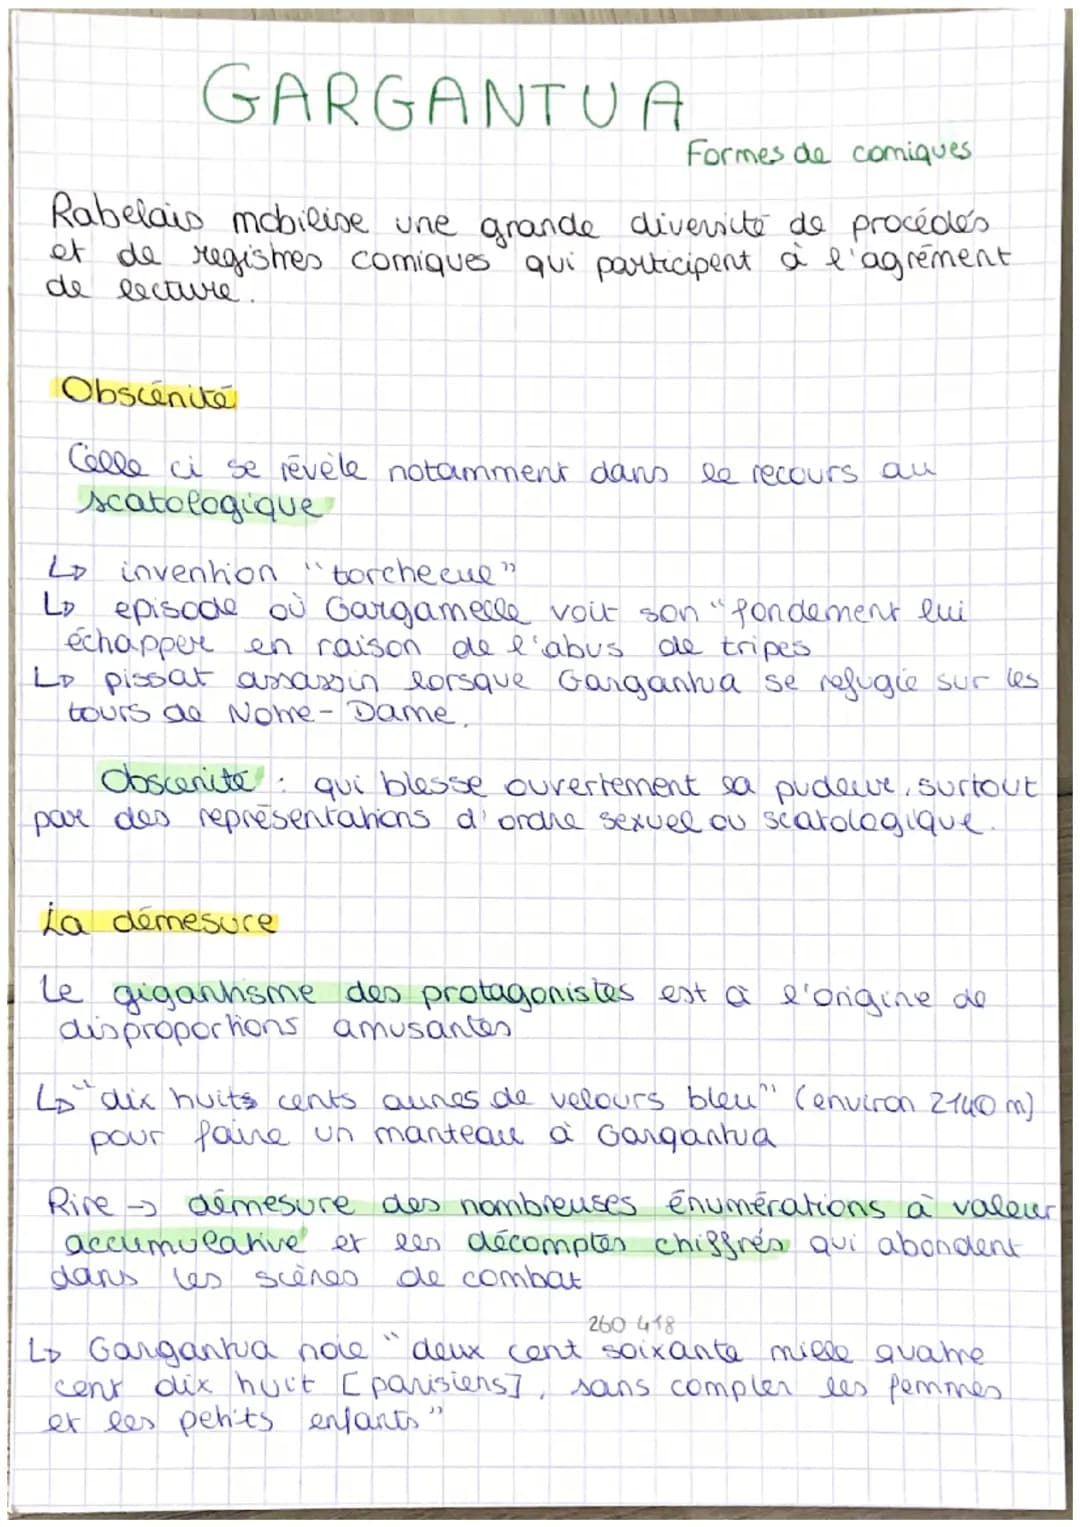 GARGANTUA
Formes de comiques
Rabelais mobilise une grande diversité de procédés
et de registres comiques qui participent à l'agrément
de lecture.
Obscénité
Celle ci se révèle notamment dans le recours au
scatologique
↳ invention "torchecul"
↳ episode où Gargamelle voit son "fondement lui
échapper en raison de l'abus de tripes
↳ pissat assassin lorsque Gargantua se refugie sur les
tours de Notre-Dame.
Obscenité : qui blesse ouvertement la pudeur, surtout
par des représentations d'ordre sexuel ou scatologique.
La démesure
Le gigantisme des protagonistes est à l'origine de
disproportions amusantes
↳ "dix huits cents aunes de velours bleu" (environ 2140 m)
pour faire un manteau à Gargantua
Rire → démesure des nombreuses énumérations à valeur
accumulative et les décomptes chiffrés qui abondent
dans les scènes de combat
260 418
↳ Gargantua noie "deux cent soixante mille quatre
cent dix huit [parisiens], sans compter les femmes
et les petits enfants"